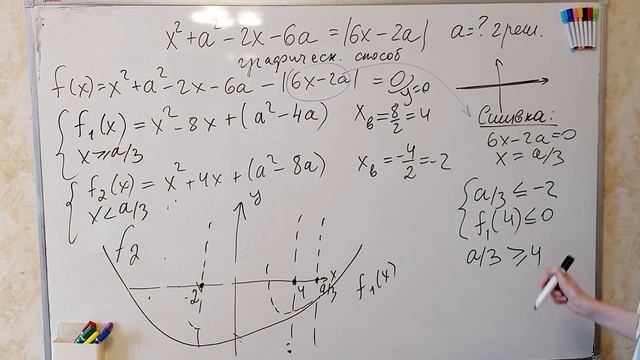 x²+a²-2x-6a = |6x-2a| a=? 2 реш.
графическ. способ
f(x)=x²+a²-2x-6a-|6x-2a| = 0
y=0
f₁(x)=x²-8x+(a²-4a) x_в=8/2=4
x⩾a/3
f₂(x)=x²+4x+(a²-8a) x_в=-4/2=-2
x<a/3
Сшивка:
6x-2a=0
x=a/3
a/3⩽-2
f₁(4)⩽0
a/3⩾4
y
f₂
-2 4 a/3 x
f₁(4)